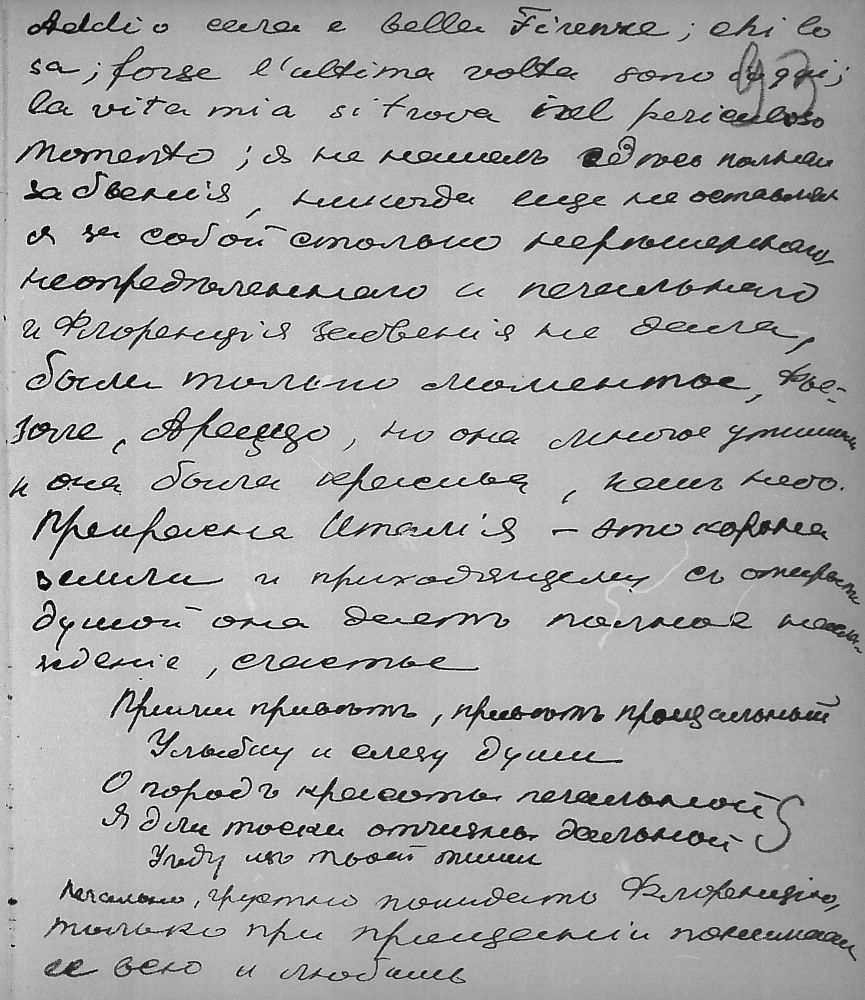 Addio cara e bella Firenze; chi lo
sa; forse l'ultima volta sono oggi;
la vita mia si trova nel periculoso
momento; я не нашелъ здѣсь полнаго
забвенія, никогда еще не оставлялъ
я за собой столько нерѣшеннаго,
неопредѣленнаго и печальнаго
и Флоренція забвенія не дала,
были только моменты, Фье-
золе, Ареццо, но она многое утишила
и она была красива, какъ небо.
Прекрасна Италія – это корона
земли и приходящему съ открытой
душой она даетъ полное насла-
жденіе, счастье
Прими привѣтъ, привѣтъ прощальный
Улыбку и слезу души
О городъ красоты печальной
Я для тоски отчизны дальной
Уйду изъ твоей тиши
Печально, грустно покидать Флоренцію,
только при прощеніи понимаешь
ее всю и любишь